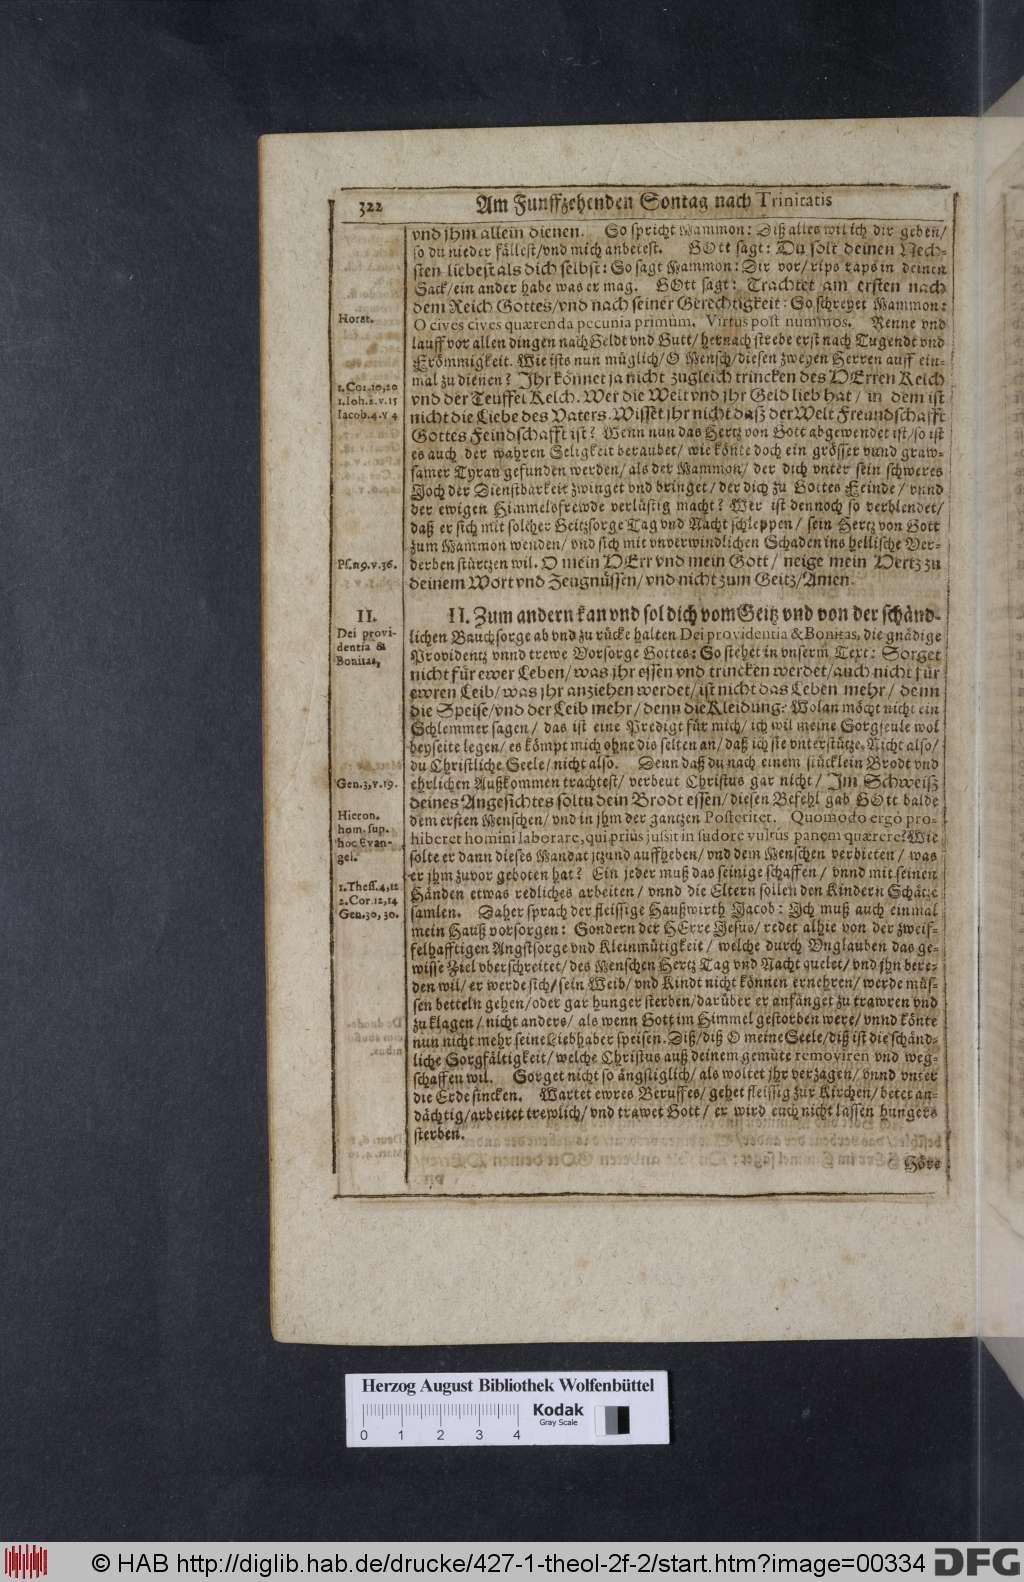 322 Am Funffzehenden Sontag nach Trinitatis
vnd jhm allein dienen. So spricht Mammon: Diß alles wil ich dir geben/
so du nieder fällest/vnd mich anbetest. GOtt sagt: Du solt deinen Nech-
sten liebest als dich selbst: So sagt Mammon: Dir vor/rips raps in deinen
Sack/ein ander habe was er mag. GOtt sagt: Trachtet am ersten nach
dem Reich Gottes/vnd nach seiner Gerechtigkeit: So schreyet Mammon:
Horat.
O cives cives quærenda pecunia primùm. Virtus post nummos. Renne vnd
lauff vor allen dingen nach Geldt vnd Gutt/ hernach strebe erst nach Tugendt vnd
Frömmigkeit. Wie ists nun müglich/O Mensch/diesen zweyen Herren auff ein-
1. Cor. 10, 20
mal zu dienen? Jhr könnet ja nicht zugleich trincken des HErren Kelch
1. Ioh. 2. v. 15
vnd der Teuffel Kelch. Wer die Welt vnd jhr Geld lieb hat/ in dem ist
Iacob. 4. v 4
nicht die Liebe des Vaters. Wisset jhr nicht daß der Welt Freundschafft
Gottes Feindschafft ist? Wenn nun das Hertz von Gott abgewendet ist/so ist
es auch der wahren Seligkeit beraubet/ wie könte doch ein grösser vnnd graw-
samer Tyran gefunden werden/ als der Mammon/ der dich vnter sein schweres
Joch der Dienstbarkeit zwinget vnd bringet/ der dich zu Gottes Feinde/ vnnd
der ewigen Himmelsfrewde verlüstig macht? Wer ist dennoch so verblendet/
daß er sich mit solcher Geitzsorge Tag vnd Nacht schleppen/ sein Hertz von Gott
zum Mammon wenden/ vnd sich mit vnverwindlichen Schaden ins hellische Ver-
Ps. 119. v. 36.
derben stürtzen wil. O mein HErr vnd mein Gott/ neige mein Hertz zu
deinem Wort vnd Zeugnüssen/ vnd nicht zum Geitz/ Amen.
II.
II. Zum andern kan vnd sol dich vom Geitz vnd von der schänd-
Dei provi-
lichen Bauchsorge ab vnd zu rücke halten Dei providentia & Bonitas, die gnädige
dentia &
Providentz vnnd trewe Vorsorge Gottes: So stehet in vnserm Text: Sorget
Bonitas,
nicht für ewer Leben/ was jhr essen vnd trincken werdet/auch nicht für
ewren Leib/ was jhr anziehen werdet/ ist nicht das Leben mehr/ denn
die Speise/vnd der Leib mehr/ denn die Kleidung? Wolan möcht nicht ein
Schlemmer sagen/ das ist eine Predigt für mich/ ich wil meine Sorgseule wol
beyseite legen/ es kömpt mich ohne dis selten an/ daß ich sie vnterstütze. Nicht also/
du Christliche Seele/ nicht also. Denn daß du nach einem stücklein Brodt vnd
Gen. 3, v. 19.
ehrlichen Außkommen trachtest/ verbeut Christus gar nicht/ Im Schweiß
deines Angesichtes soltu dein Brodt essen/ diesen Befehl gab GOtt balde
Hieron.
dem ersten Menschen/ vnd in jhm der gantzen Posteritet. Quomodo ergò pro-
hom. sup.
hiberet homini laborare, qui priùs jussit in sudore vultus panem quærere? Wie
hoc Evan-
solte er dann dieses Mandat jtzund auffheben/ vnd dem Menschen verbieten/ was
gel.
er jhm zuvor geboten hat? Ein jeder muß das seinige schaffen/ vnnd mit seinen
1. Thess. 4, 12
Händen etwas redliches arbeiten/ vnnd die Eltern sollen den Kindern Schätze
2. Cor. 12, 14
samlen. Daher sprach der fleissige Haußwirth Jacob: Ich muß auch einmal
Gen. 30, 30.
mein Hauß vorsorgen: Sondern der HErre Jesus/ redet alhie von der zweif-
felhafftigen Angstsorge vnd Kleinmütigkeit/ welche durch Vnglauben das ge-
wisse Ziel vberschreitet/ des Menschen Hertz Tag vnd Nacht quelet/ vnd jhn bere-
den wil/ er werde sich/ sein Weib/ vnd Kindt nicht können ernehren/ werde müs-
sen betteln gehen/oder gar hunger sterben/darüber er anfänget zu trawren vnd
zu klagen/ nicht anders/ als wenn Gott im Himmel gestorben were/ vnnd könte
nun nicht mehr seine Liebhaber speisen. Diß/diß O meine Seele/diß ist die schänd-
liche Sorgfältigkeit/ welche Christus auß deinem gemüte removiren vnd weg-
schaffen wil. Sorget nicht so ängstiglich/ als woltet jhr verzagen/ vnnd vnter
die Erde sincken. Wartet ewres Beruffes/ gehet fleissig zur Kirchen/ betet an-
dächtig/arbeitet trewlich/ vnd trawet Gott/ er wird euch nicht lassen hungers
sterben.
Höre
Herzog August Bibliothek Wolfenbüttel
0 1 2 3 4
Kodak
Gray Scale
© HAB http://diglib.hab.de/drucke/427-1-theol-2f-2/start.htm?image=00334 DFG